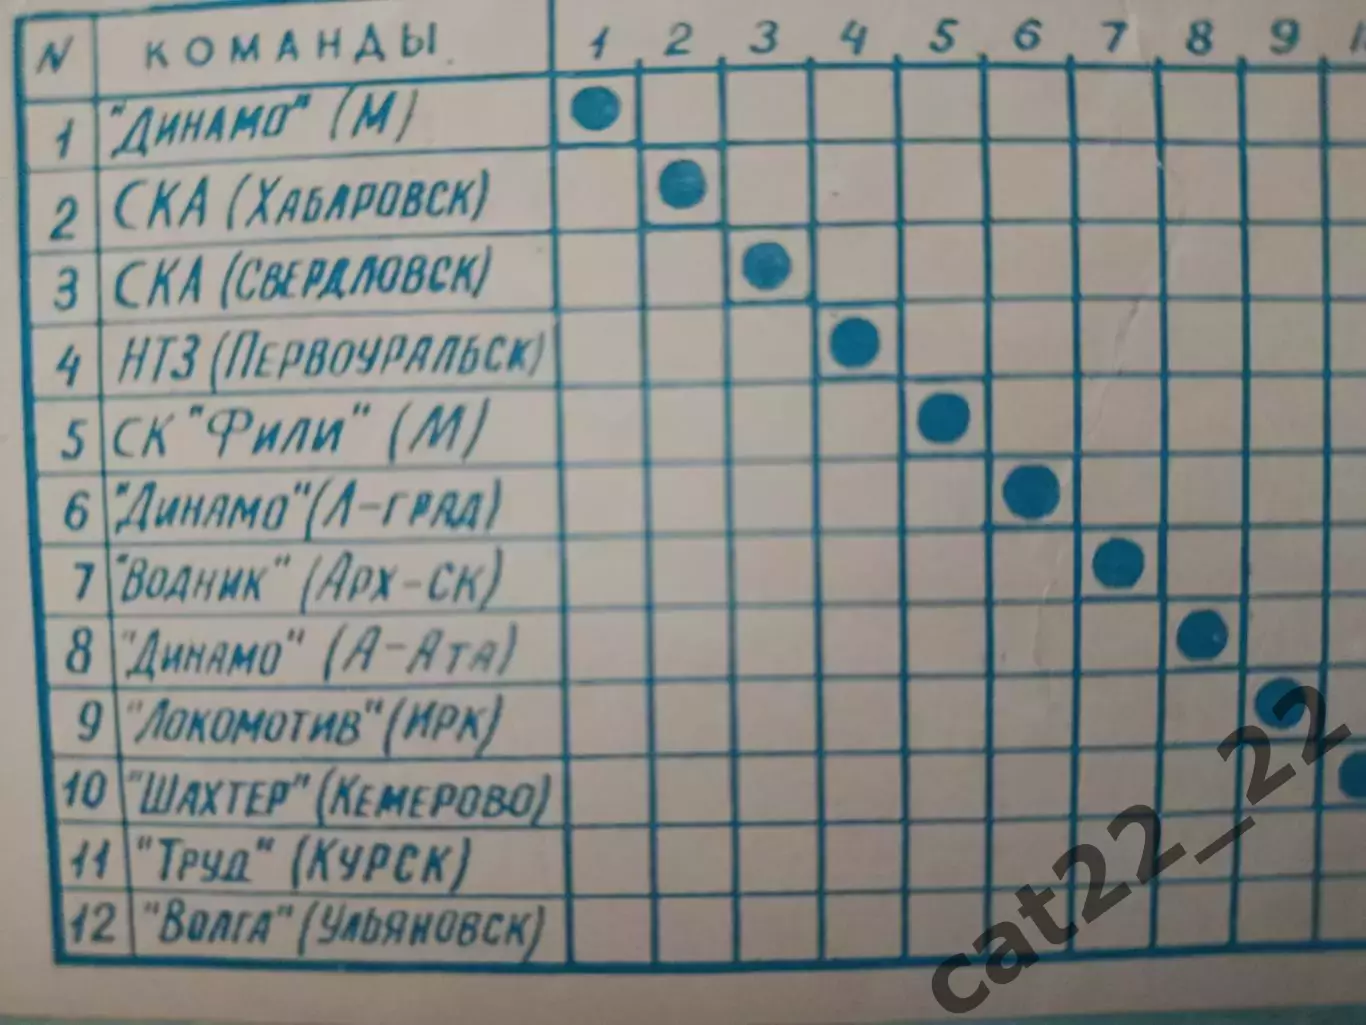 N КОМАНДЫ 1 2 3 4 5 6 7 8 9
1 "ДИНАМО" (М)
2 СКА (ХАБАРОВСК)
3 СКА (СВЕРДЛОВСК)
4 НТЗ (ПЕРВОУРАЛЬСК)
5 СК "ФИЛИ" (М)
6 "ДИНАМО" (Л-ГРАД)
7 "ВОДНИК" (АРХ-СК)
8 "ДИНАМО" (А-АТА)
9 "ЛОКОМОТИВ" (ИРК)
10 "ШАХТЕР" (КЕМЕРОВО)
11 "ТРУД" (КУРСК)
12 "ВОЛГА" (УЛЬЯНОВСК)
cat22_22